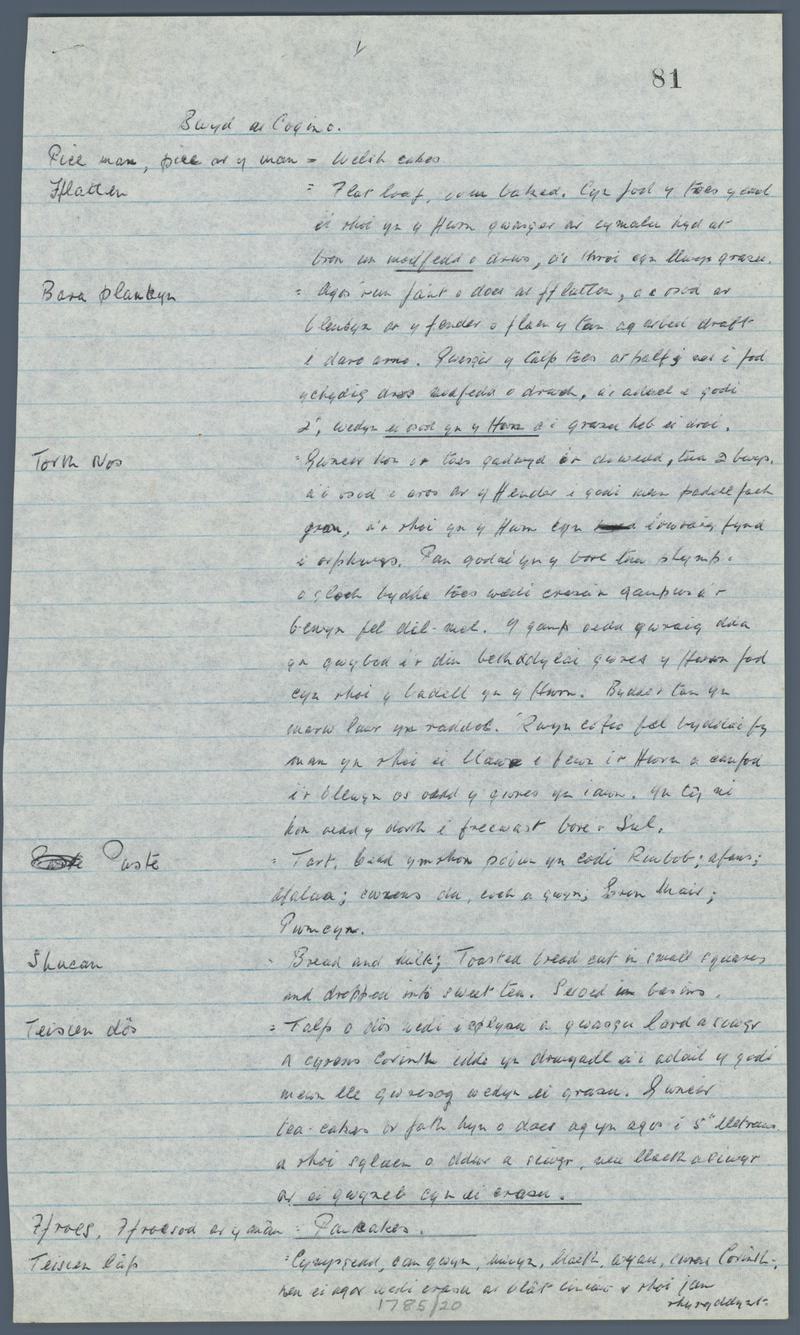 81
Bwyd a Cogino.
Pice man, pice ar y man = Welsh cakes
Fflatten = Flat loaf, oven baked. Cyn fod y toes yn cael
ei rhoi yn y ffwrn gwasger ar cymalu hyd at
bron un modfedd o drws, a'i throi cyn llwyr grasu.
Bara plankyn = Agos 'run faint o does a'r fflatten, a'i osod ar
blenkyn ar y fender o flaen y tan ag arbed draft
i daro arno. Gwasgir y talp toes at half y nos i fod
ychydig dros modfedd o drwch, a'i adael i godi
2", wedyn ei osod yn y ffwrn a'i grasu heb ei droi.
Torth Nos = Gwneir hon o'r toes gadwyd o'r diwedd, tua 2 bwys.
a'i osod i aros ar y ffender i godi mewn padell fach
gron, a'i rhoi yn y ffwrn cyn i'r wraig fynd
i orphwys. Pan godai yn y bore tua phymp
o'gloch bydde toes wedi crasu'n gampus a'r
bewyn fel dil-mel. Y gamp oedd gwraig dda
yn gwybod i'r dim beth ddylai gwres y ffwrn fod
cyn rhoi y badell yn y ffwrn. Bydde'r tan yn
marw lawr yn raddol. 'Rwyn cofio fel byddai fy
mam yn rhoi ei llaw i fewn i'r ffwrn a canfod
i'r blewyn os oedd y gwres yn iawn. Yn tŷ ni
hon oedd y dorth i frecwast bore Sul.
Paste = Tart, bydd ymron pobun yn codi Rwbob; afans;
afalau; cwrens du, coch a gwyn; Eron Mair;
Pwmcyn.
Shucan = Bread and milk; Toasted bread cut in small squares
and dropped into sweet tea. Served in basins.
Teisen dôs = Talp o dôs wedi ei bylynu a gwasgu lard a siwgr
a cyrens Corinth iddo yn drwyadl a'i adail i godi
mewn lle gwresog wedyn ei grasu. Gwneir
tea-cakes o'r fath hyn o does ag yn agos i 5" lletraws
a rhoi sglaen o ddwr a siwgr, neu llaeth a siwgr
ar ei gwyneb cyn ei crasu.
Ffroes, Ffroesod ar y mân = Pancakes.
Teisen lâp = Cymysgedd, can gwyn, menyn, llaeth, wyau, cwrens Corinth,
neu ei agor wedi crasu ar blât enamel a rhoi jam
rhyngddynt.
1785/20